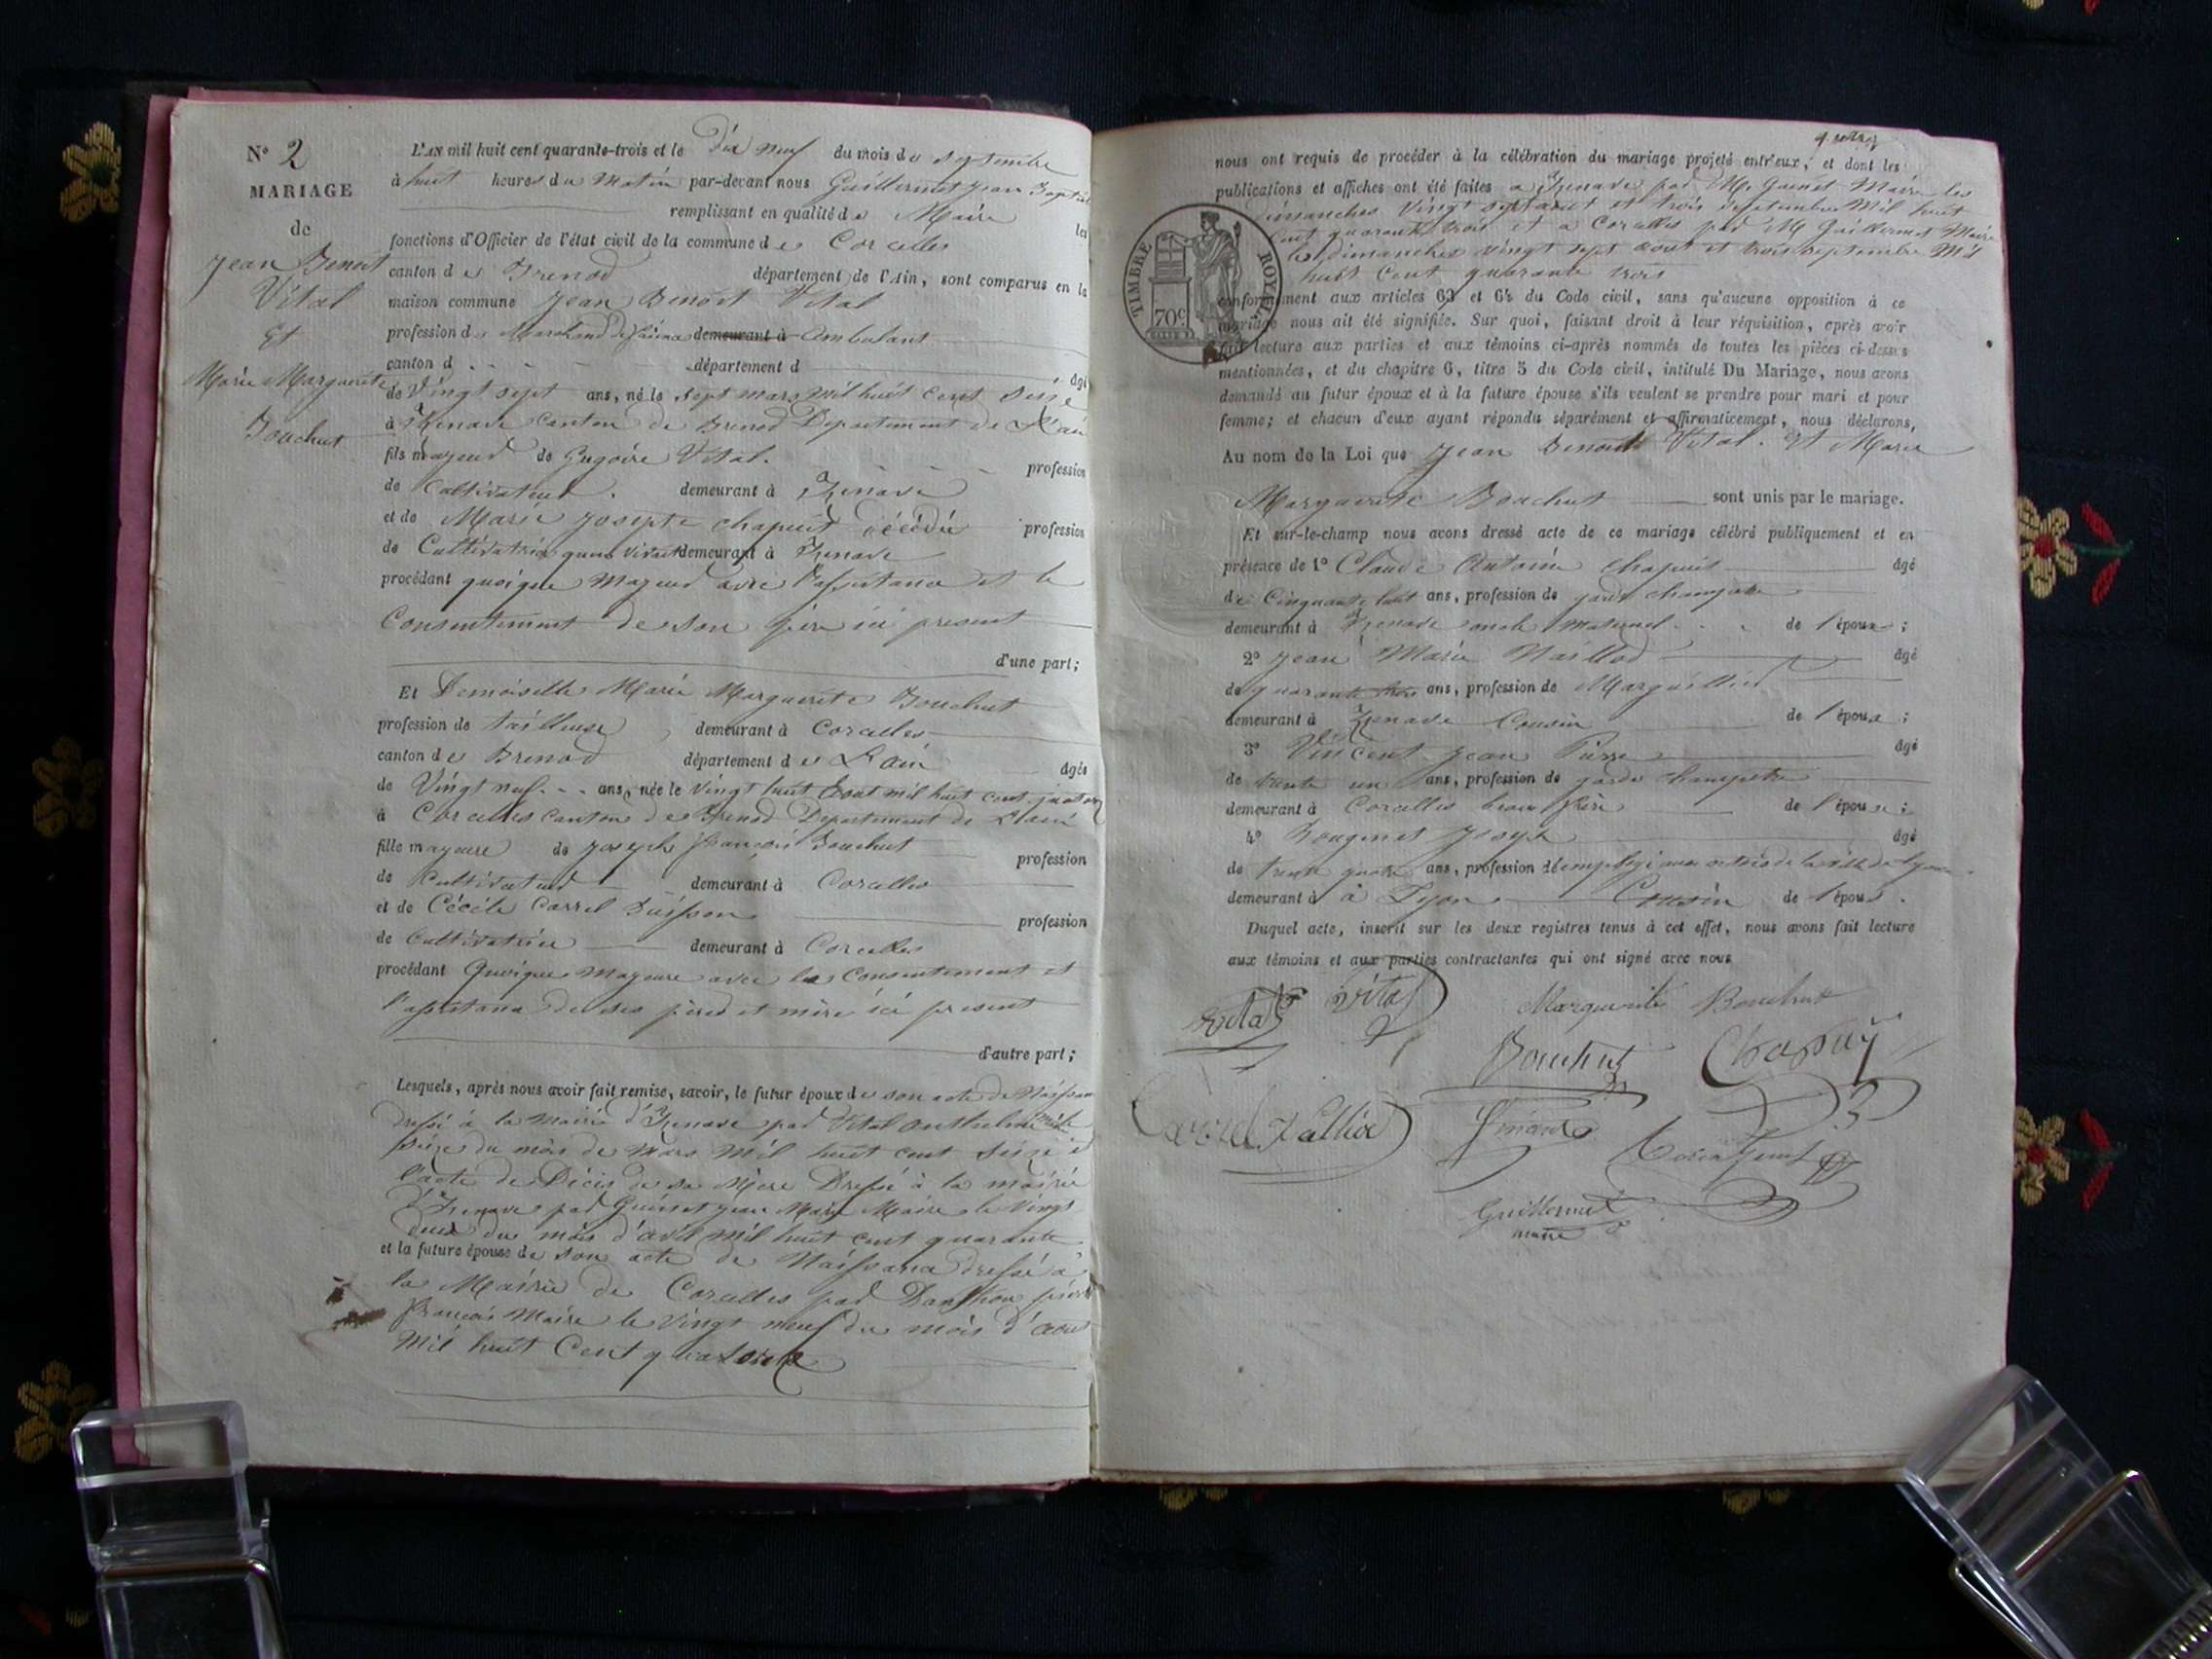 N° 2
MARIAGE
de
Jean Benoit
Vital
Et
Marie Marguerite
Bouchut
L'AN mil huit cent quarante-trois et le Dix neuf du mois de septembre
à huit heures du Matin par-devant nous Guillermet Jean Baptiste
remplissant en qualité de Maire les
fonctions d'Officier de l'état civil de la commune de Corcelles
canton de Brenod département de l'Ain, sont comparus en la
maison commune Jean Benoit Vital
profession de Marchand demeurant à Ambulant
canton d département d âgé
de Vingt sept ans, né le sept mars mil huit cent seize
à Izenave Canton de Brenod Departement de L'ain
fils majeur de Gregoire Vital. profession
de Cultivateur. demeurant à Izenave
et de Marie Josepte Chapuit décédée profession
de Cultivatrice demeurant à Izenave
procédant quoique Majeur avec l'assistance et le
Consentement de son père ici présent
d'une part;
Et Demoiselle Marie Marguerite Bouchut
profession de tailleuse demeurant à Corcelles
canton de Brenod département de L'ain âgée
de Vingt neuf ans, née le vingt huit Aout mil huit cent quatorze
à Corcelles Canton de Brenod Departement de L'ain
fille majeure de Joseph François Bouchut profession
de Cultivateur demeurant à Corcelles
et de Cécile Carrel Buisson profession
de Cultivatrice demeurant à Corcelles
procédant Quoique Majeure avec le Consentement et
l'assistance de ses père et mère ici present
d'autre part;
Lesquels, après nous avoir fait remise, savoir, le futur époux de son acte de Naissance
dressé à la Mairie d'Izenave par Vital
seize du mois de Mars Mil huit cent seize et
l'acte de Décès de sa Mère Dressé à la mairie
d'Izenave par Guinet Jean Marie Maire le Vingt
deux du mois d'avril Mil huit cent quarante
et la future épouse de son acte de Naissance dressé à
la Mairie de Corcelles par Danthon pierre
François Maire le Vingt neuf du mois d'aout
Mil huit Cent quatorze
nous ont requis de procéder à la célébration du mariage projeté entr'eux, et dont les
publications et affiches ont été faites a Izenave par Mr Guinet Maire les
dimanches Vingt sept aout et trois septembre Mil huit
Cent quarante trois et a Corcelles par Mr Guillermet Maire
les dimanches vingt sept aout et trois septembre Mil
huit Cent quarante trois
TIMBRE ROYAL
70c
conformément aux articles 63 et 64 du Code civil, sans qu'aucune opposition à ce
mariage nous ait été signifiée. Sur quoi, faisant droit à leur réquisition, après avoir
fait lecture aux parties et aux témoins ci-après nommés de toutes les pièces ci-dessus
mentionnées, et du chapitre 6, titre 5 du Code civil, intitulé Du Mariage, nous avons
demandé au futur époux et à la future épouse s'ils veulent se prendre pour mari et pour
femme; et chacun d'eux ayant répondu séparément et affirmativement, nous déclarons,
Au nom de la Loi que Jean Benoit Vital. Et Marie
Marguerite Bouchut sont unis par le mariage.
Et sur-le-champ nous avons dressé acte de ce mariage célébré publiquement et en
présence de 1° Claude Antoine Chapuis âgé
de Cinquante huit ans, profession de garde champetre
demeurant à Izenave oncle maternel de l'époux;
2° Jean Marie Maillod âgé
de quarante trois ans, profession de Marguillier
demeurant à Izenave Cousin de l'époux;
3° Vincent Jean Pierre âgé
de trente un ans, profession de garde Champetre
demeurant à Corcelles beau frère de l'épouse;
4° Joseph âgé
de trente quatre ans, profession d'employé aux octrois de la ville de Lyon
demeurant à à Lyon Cousin de l'épous.
Duquel acte, inscrit sur les deux registres tenus à cet effet, nous avons fait lecture
aux témoins et aux parties contractantes qui ont signé avec nous
Vital Vital Marguerite Bouchut
Bouchut Chapuy
Guillermet
maire